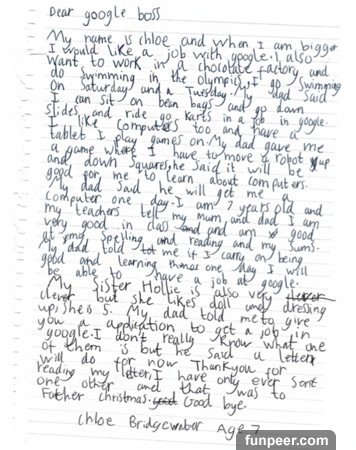 Dear google boss
My name is chloe and when I am bigger
I would like a job with google. I also
want to work in a chocolate factory and
do swimming in the olympics. I go Swimming
on Saturday and a Tuesday. My dad said
I can sit on bean bags and go down
slides and ride go karts in a job in google.
I like computers too and have a
tablet I play games on. My dad gave me
a game where I have to move a robot up
and down squares, he said it will be
good for me to learn about computers.
My dad said he will get me a
computer one day. I am 7 years old and
my teachers tell my mum and dad I am
very good in class and and am good
at my Spelling and reading and my sums.
my dad told me if I carry on being
good and learning then one day I will
be able to have a job at google.
My sister Hollie is also very
clever but she likes doll and dressing
up, She is 5. My dad told me to give
you a application to get a job in
google. I don't really know what one
of them is but he said a letter
will do for now. Thank you for
reading my letter, I have only ever sent
one other and that was to
Father christmas. Good bye.
Chloe Bridgewater Age 7
funpeer.com